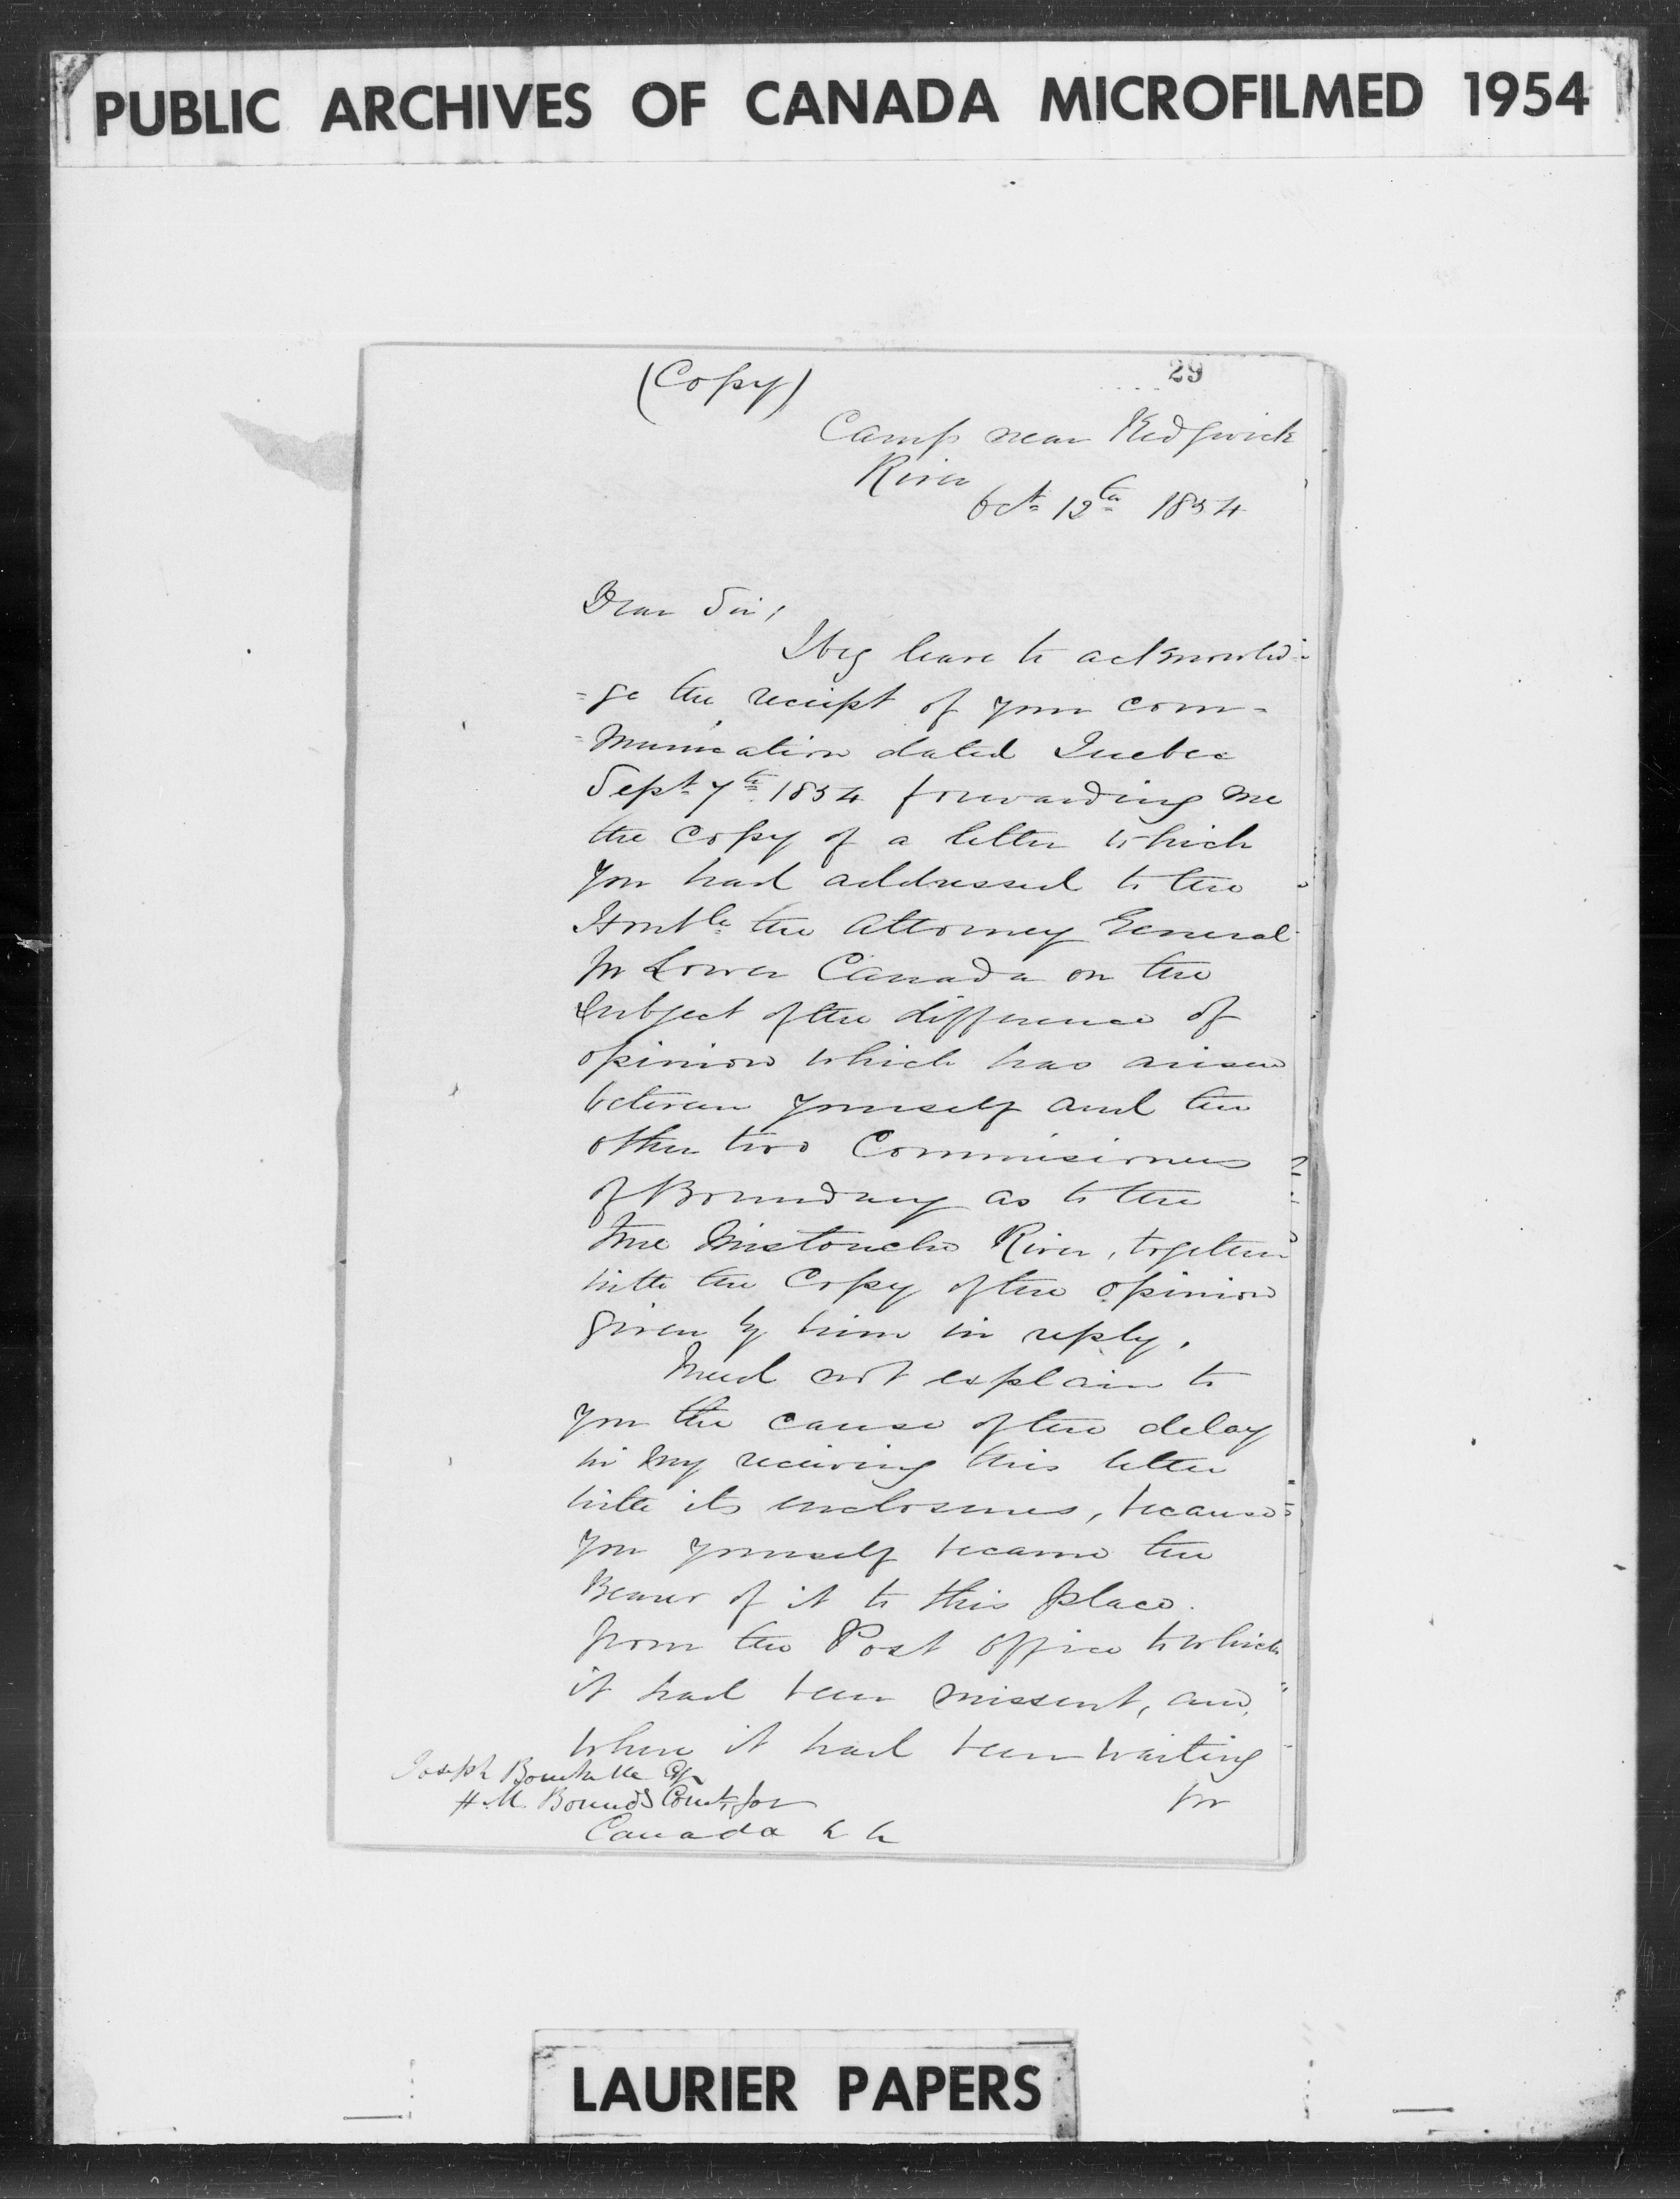 PUBLIC ARCHIVES OF CANADA MICROFILMED 1954
29
(Copy)
Camp near Kedgwick
River
Oct 12th 1854
Dear Sir,
I beg leave to acknowled-
-ge the receipt of your com-
-munication dated Quebec
Sept 7th 1854 forwarding me
the Copy of a letter which
you had addressed to the
Honble the Attorney General
for Lower Canada on the
Subject of the difference of
opinion which has arisen
between yourself and the
other two Commisioners
of Boundary as to the
true Mistouche River, together
with the Copy of the opinion
given by him in reply.
Need not explain to
you the cause of the delay
in my receiving this letter
with its enclosures, because
you yourself became the
Bearer of it to this place.
from the Post office to which
it had been missent, and
where it had been waiting
for
Joseph Bouchette Esq
H. M. Bound Comr for
Canada
LAURIER PAPERS